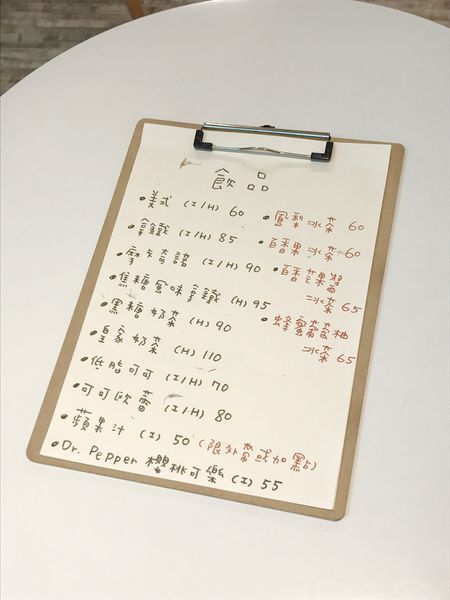 飲品
•美式 (I/H) 60
•拿鐵 (I/H) 85
•摩卡奇諾 (I/H) 90
•焦糖風味拿鐵 (H) 95
•黑糖奶茶 (H) 90
•皇家奶茶 (H) 110
•低脂可可 (I/H) 70
•可可歐蕾 (I/H) 80
•蘋果汁 (I) 50 (限外帶或加點)
•Dr. Pepper 櫻桃可樂 (I) 55
•鳳梨冰茶 60
•百香果冰茶 60
•百香芒果醬
冰茶 65
•蜂蜜葡萄柚
冰茶 65